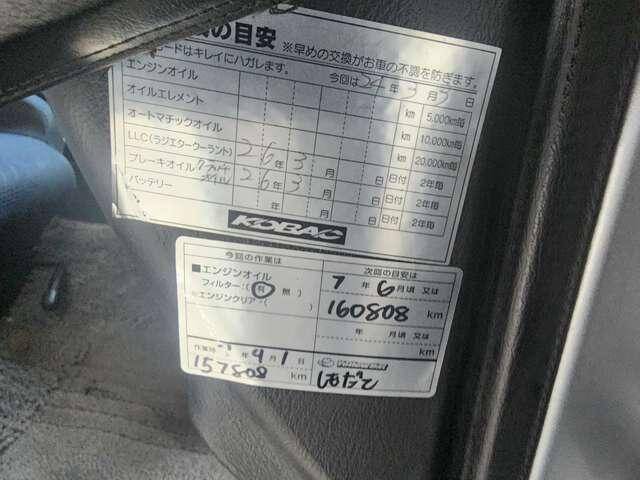 の目安 ※早めの交換がお車の不調を防ぎます。
ードはキレイにハガレます。 今回は 24年3月 日
エンジンオイル km 5,000km毎
オイルエレメント km 10,000km毎
オートマチックオイル km 20,000km毎
LLC(ラジエタークーラント) 26年3月 日 日付 2年毎
ブレーキオイル 26年3月 日 日付 2年毎
バッテリー 年 月 日 日付 2年毎
KOBAC
今回の作業は 次回の目安は
■エンジンオイル 7年6月頃 又は
フィルター:(有 無) 160808 km
※エンジンクリア:( ) 年 月頃 又は
km
作業時 年4月1日
157808 km